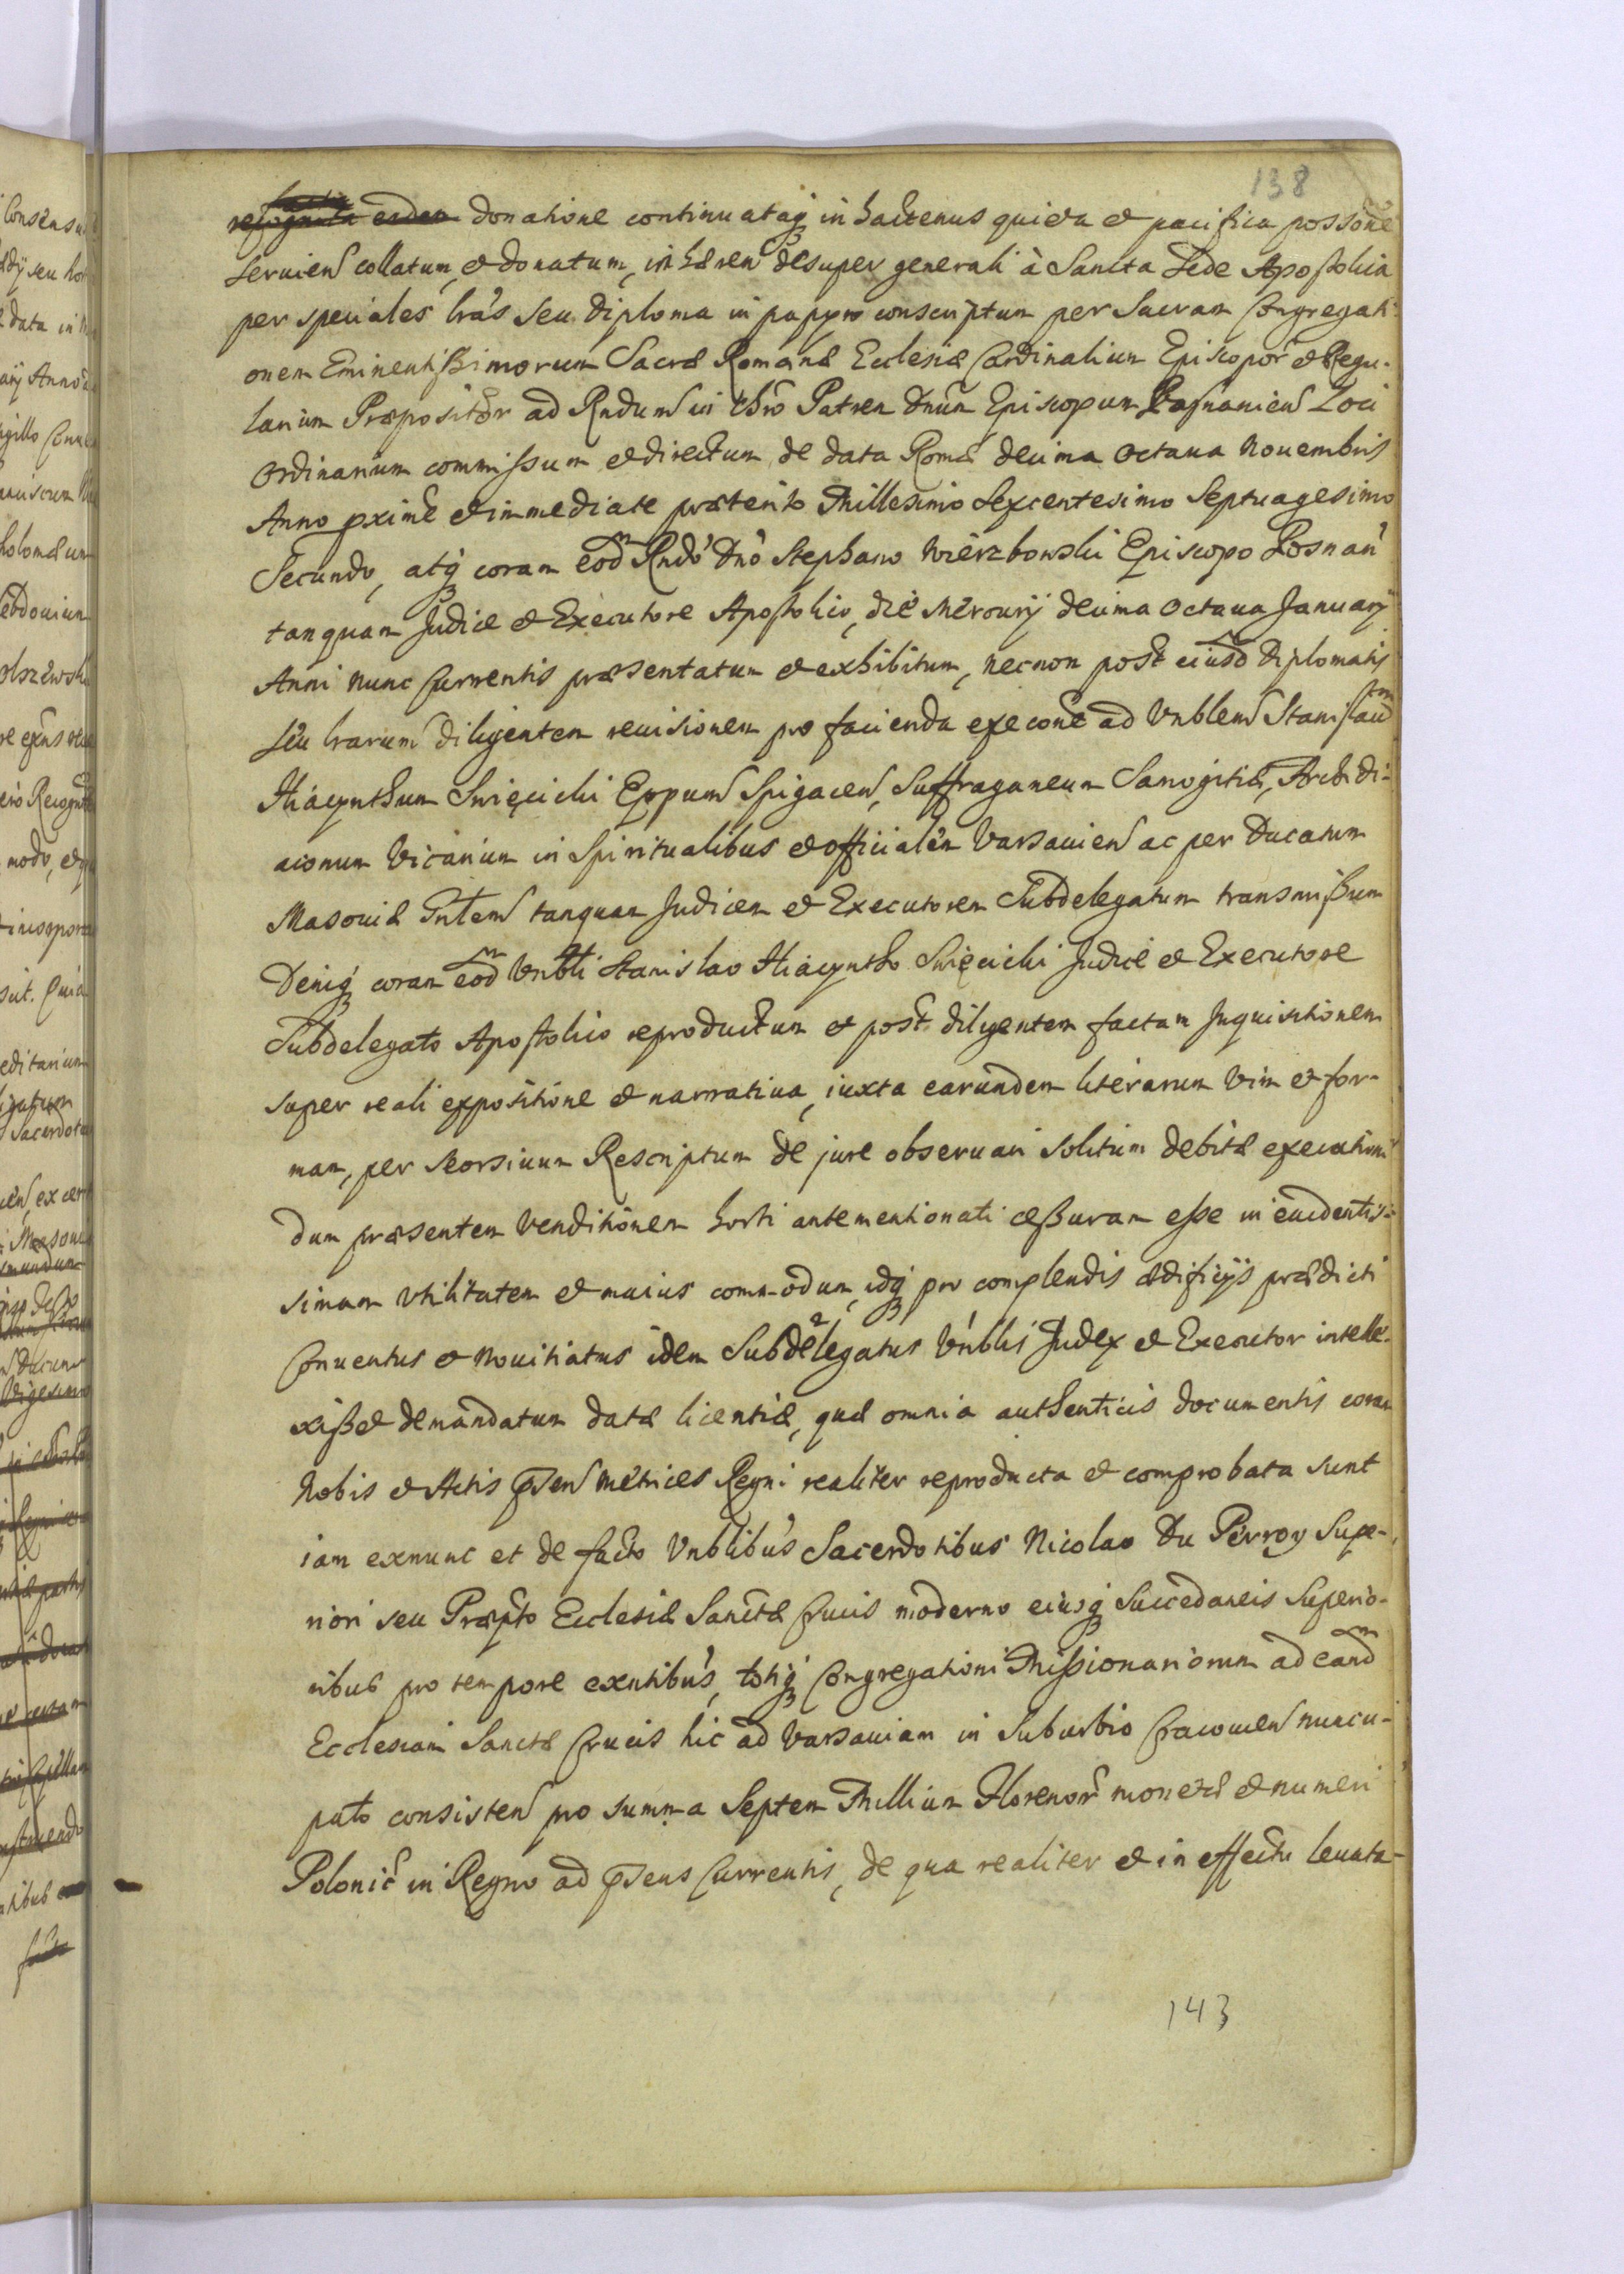 138
donatione continuataq in hactenus quieta et pacifica possone
seruien collatum, et donatum, inhæren desuper generali à Sancta Sede Apostolica
per speciales lras seu Diploma in papyro conscriptum per Sacram Congregati-
onem Eminentissimorum Sacræ Romanæ Ecclesiæ Cardinalium Episcopor et Regu-
larium Præpositor ad Rndum in Chro Patrem Dnum Episcopum Posnanien Loci
Ordinarium commissum et directum de data Romæ decima Octaua Nouembris
Anno pxime et immediate præterito Millesimo Sexcentesimo Septuagesimo
Secundo, atq coram eod Rndo Dno Stephano Wierzbowski Episcopo Posnan
tanquam Judice et Executore Apostolico, die Mercurij decima Octaua Januarij
Anni nunc Currentis præsentatum et exhibitum, necnon post eiusd Diplomatis
seu lrarum diligentem reuisionem pro facienda execone ad Vnblem Stanislaum
Hiacynthum Swięcicki Eppum Spigacen, Suffraganeum Samogitiæ, Archidi-
aconum Vicarium in Spiritualibus et officialem Varsauien ac per Ducatum
Masouiæ Gnlem tanquam Judicem et Executorem Subdelegatum transmissum
Deniq coram eod Vnbli Stanislao Hiacyntho Swięcicki Judice et Executore
Subdelegato Apostolico reproductum et post diligentem factam Inquisitionem
super reali expositione et narratiua, iuxta earundem literarum vim et for-
mam, per seorsiuum Rescriptum de jure obseruari solitum debitæ executioni
dum præsentem Venditionem horti antementionati cessuram esse in euidentis-
simam vtilitatem et maius commodum, idq pro complendis ædificijs prædicti
Conuentus et Nouitiatus idem Subdelegatus Vnblis Judex et Executor intelle-
xisset demandatum datæ licentiæ, quæ omnia authenticis documentis coram
Nobis et Actis pnsen Metrices Regni realiter reproducta et comprobata sunt
iam exnunc et de facto Vnblibus Sacerdotibus Nicolao Du Perroy Supe-
riori seu Præpto Ecclesiæ Sanctæ Crucis moderno eiusq Succedaneis Superio-
ribus pro tempore exntibus, totiq Congregationi Missionariorum ad eand
Ecclesiam Sanctæ Crucis hic ad Varsauiam in Suburbio Cracouien nuncu-
pato consisten pro summa Septem Millium Florenor monetæ et numeri
Polonic in Regno ad pnsens Currentis, de qua realiter et in effectu leuata-
143